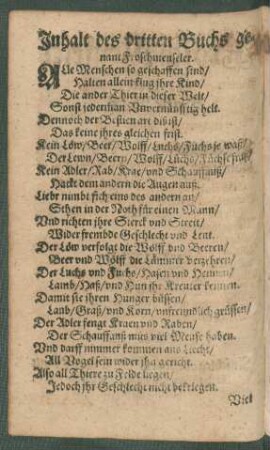 Inhalt des dritten Buchs ge-
nant Froschmeuseler.
Alle Menschen so geschaffen sind/
Halten allein klug jhre Kind/
Die ander Thier in dieser Welt/
Sonst jederman Unvernünfftig helt.
Dennoch der Bestien art dis ist/
Das keine jhres gleichen frist.
Kein Löw/ Beer/ Wolff/ Luchs/ Fuchs je waß/
Der Lewn/ Beern/ Wolff/ Lüchs/ Füchse fraß/
Kein Adler/ Rab/ Krae/ und Schauffauß/
Hackt dem andern die Augen auß.
Liebr nimbt sich eins des andern an/
Sthen in der Noth für einen Mann/
Und richten jhre Sterck und Streit/
Wider frembde Geschlecht und Leut.
Der Löw verfolgt die Wolff und Beeren/
Beer und Wölff die Lämmer verzehren/
Der Luchs und Fuchs/ Hasen und Hennen/
Lamb/ Haß/ und Hun jhr Kreuter kennen.
Damit sie jhren Hunger büssen/
Laub/ Graß/ und Korn/ unfreundlich grüssen/
Der Adler fengt Kraen und Raben/
Der Schauffauß mus viel Meuse haben.
Und darff nimmer kommen ans Liecht/
All Vogel sein wider jhn gericht.
Also all Thiere zu Felde liegen/
Jedoch jhr Geschlecht nicht bekriegen.
Viel